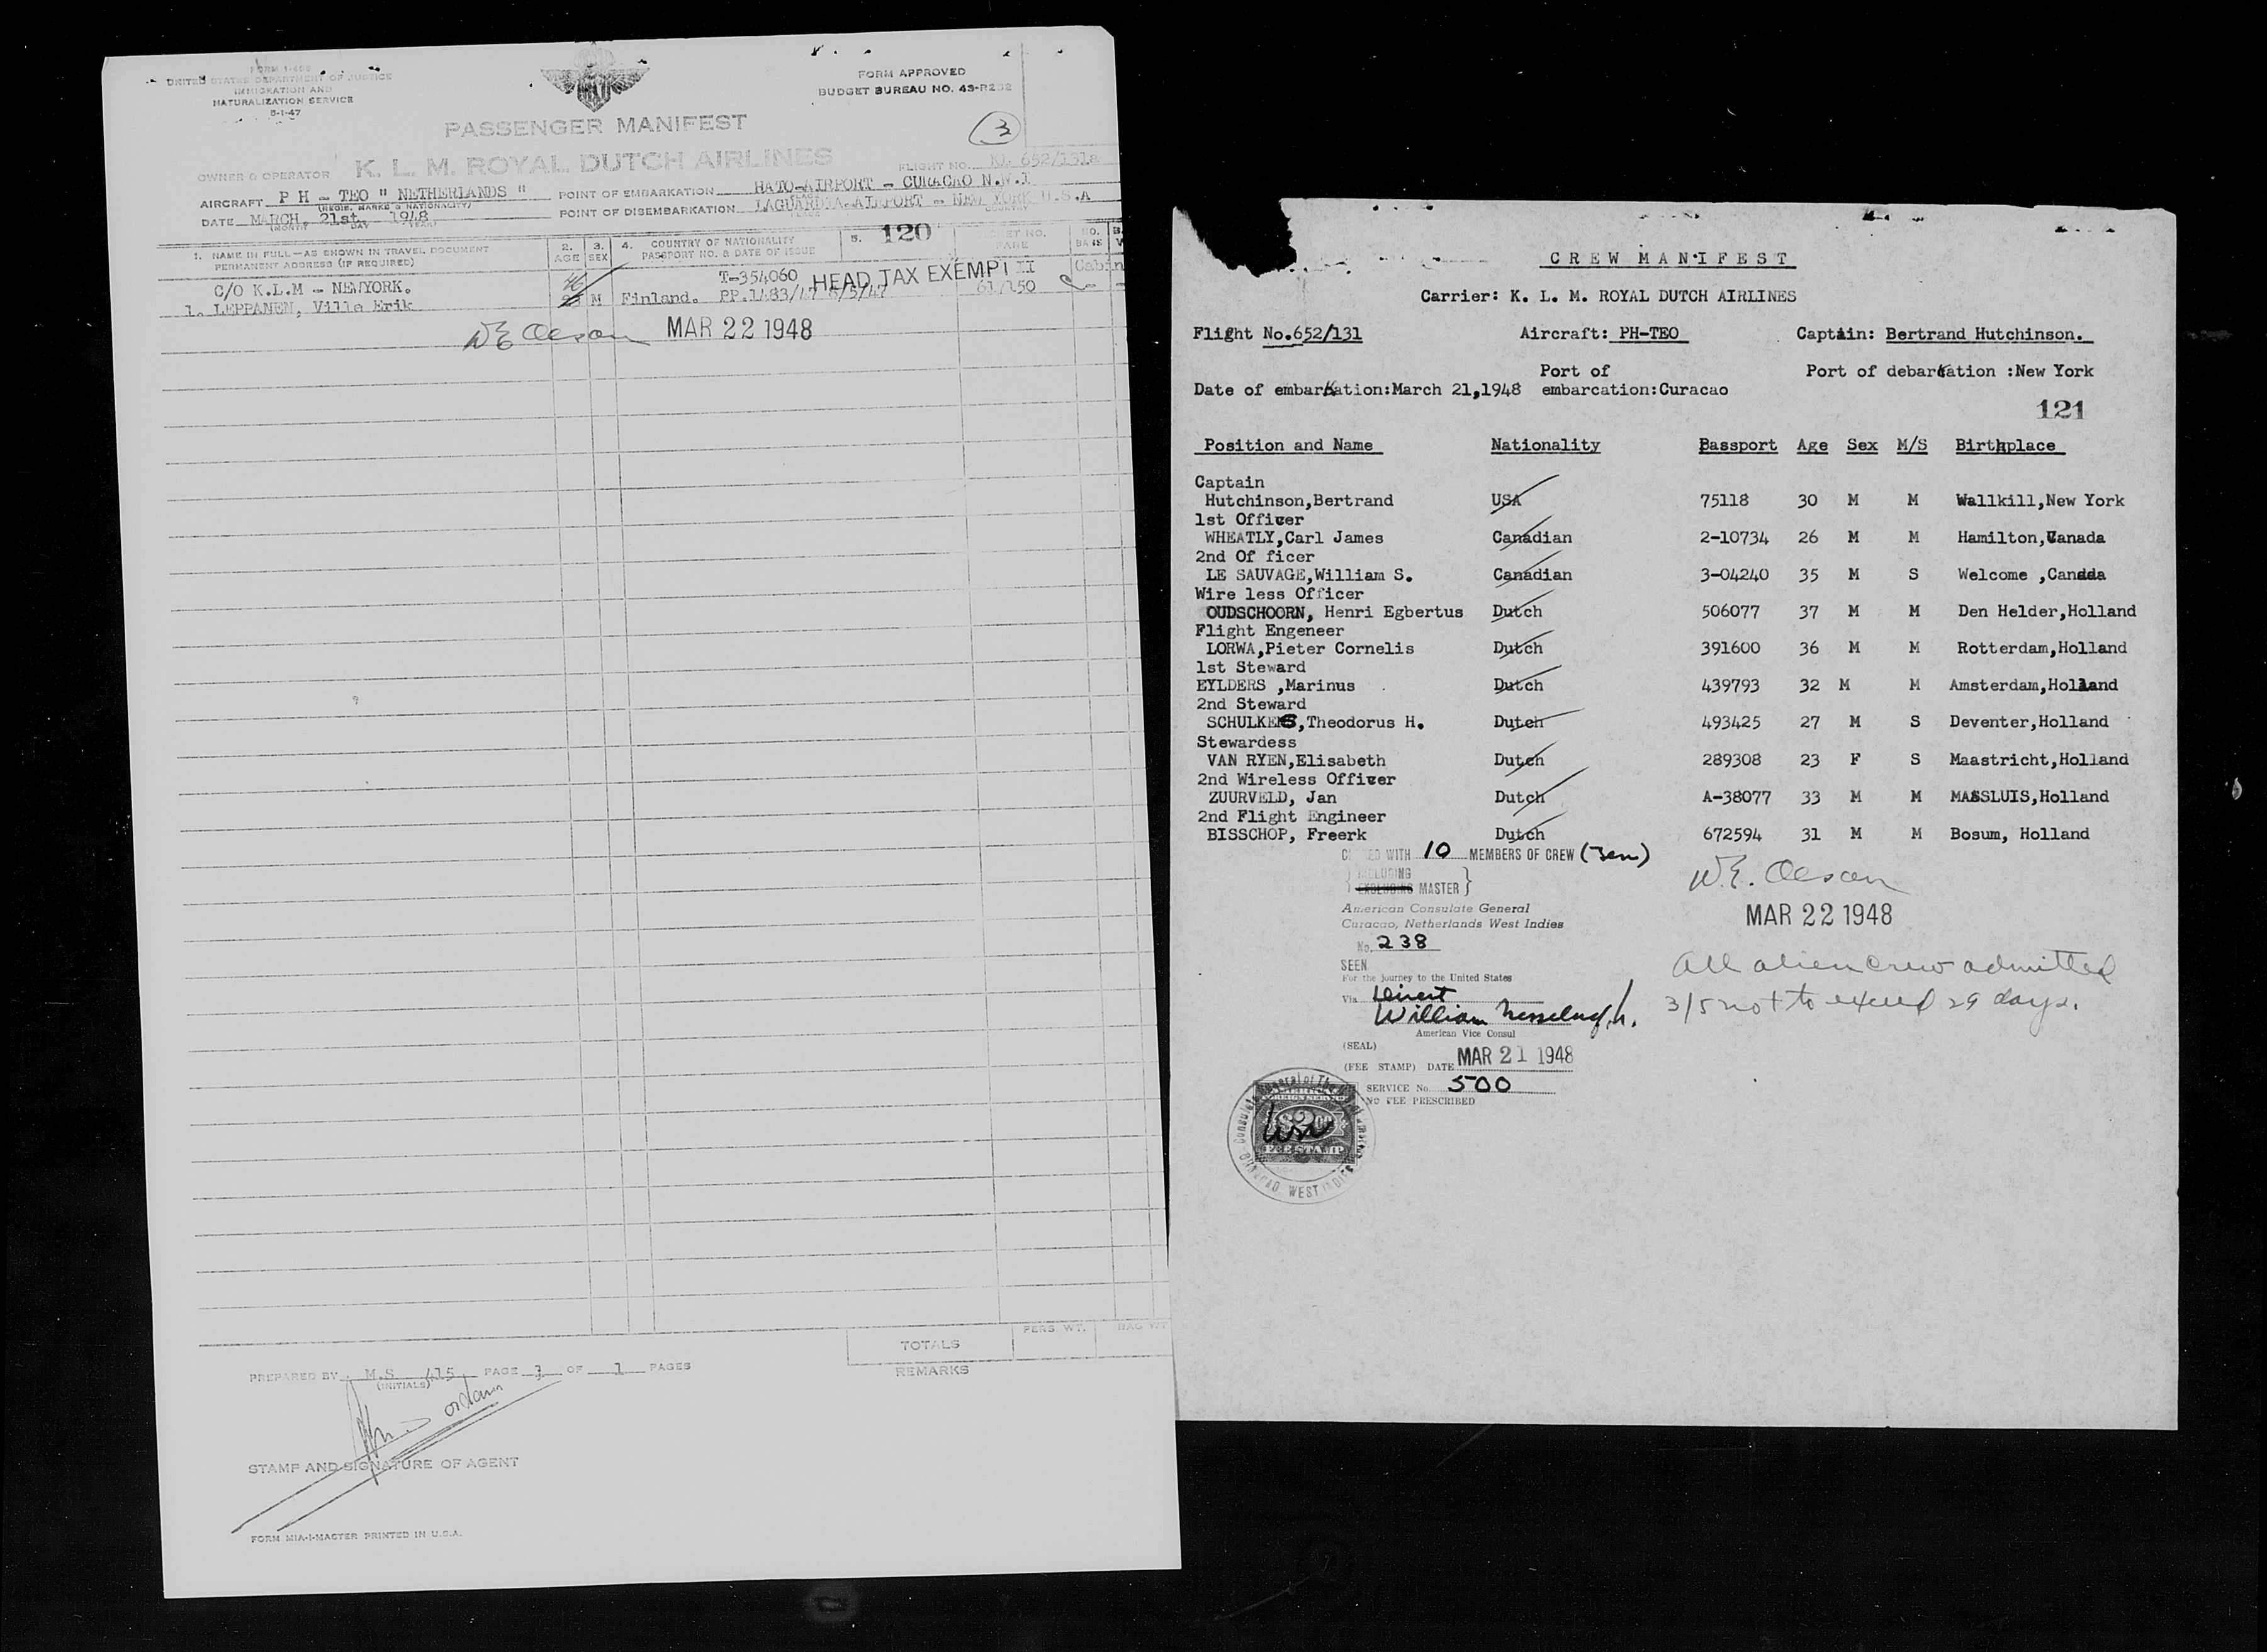 FORM I-466
UNITED STATES DEPARTMENT OF JUSTICE
IMMIGRATION AND
NATURALIZATION SERVICE
5-1-47
FORM APPROVED
BUDGET BUREAU NO. 43-R232
3
PASSENGER MANIFEST
OWNER & OPERATOR K. L. M. ROYAL DUTCH AIRLINES FLIGHT NO. KL 652/131a
AIRCRAFT P H - TEO " NETHERLANDS " POINT OF EMBARKATION HATO-AIRPORT - CURACAO N.W.I
(REGIS. MARKS & NATIONALITY)
DATE MARCH, 21st. 1948 POINT OF DISEMBARKATION LAGUARDIA-AIRPORT - NEW YORK U.S.A
(MONTH DAY YEAR) PLACE COUNTRY
1. NAME IN FULL—AS SHOWN IN TRAVEL DOCUMENT
PERMANENT ADDRESS (IF REQUIRED)
2. AGE 3. SEX 4. COUNTRY OF NATIONALITY
PASSPORT NO. & DATE OF ISSUE
5. 120
C/O K.L.M - NEWYORK. T-354060 HEAD TAX EXEMPT II Cabin
1. LEPPANEN, Ville Erik M Finland. PP.1483/47 8/5/47 617150
W E Olesan MAR 22 1948
TOTALS PERS. WT. BAG WT
PREPARED BY M.S 415 PAGE 1 OF 1 PAGES REMARKS
(INITIALS)
STAMP AND SIGNATURE OF AGENT
FORM MIA-I-MASTER PRINTED IN U.S.A.
CREW MANIFEST
Carrier: K. L. M. ROYAL DUTCH AIRLINES
Flight No.652/131 Aircraft: PH-TEO Captain: Bertrand Hutchinson.
Date of embarkation:March 21,1948 Port of embarcation:Curacao Port of debarkation :New York
121
Position and Name Nationality Passport Age Sex M/S Birthplace
Captain
Hutchinson,Bertrand USA 75118 30 M M Wallkill,New York
1st Officer
WHEATLY,Carl James Canadian 2-10734 26 M M Hamilton,Canada
2nd Of ficer
LE SAUVAGE,William S. Canadian 3-04240 35 M S Welcome ,Canada
Wire less Officer
OUDSCHOORN, Henri Egbertus Dutch 506077 37 M M Den Helder,Holland
Flight Engeneer
LORWA,Pieter Cornelis Dutch 391600 36 M M Rotterdam,Holland
1st Steward
EYLDERS ,Marinus Dutch 439793 32 M M Amsterdam,Holland
2nd Steward
SCHULKES,Theodorus H. Dutch 493425 27 M S Deventer,Holland
Stewardess
VAN RYEN,Elisabeth Dutch 289308 23 F S Maastricht,Holland
2nd Wireless Officer
ZUURVELD, Jan Dutch A-38077 33 M M MASSLUIS,Holland
2nd Flight Engineer
BISSCHOP, Freerk Dutch 672594 31 M M Bosum, Holland
WITH 10 MEMBERS OF CREW (Ten)
INCLUDING
EXCLUDING MASTER
American Consulate General
Curacao, Netherlands West Indies
No. 238
SEEN
For the journey to the United States
Via Direct
William
American Vice Consul
(SEAL)
(FEE STAMP) DATE MAR 21 1948
SERVICE No. 500
NO FEE PRESCRIBED
FOREIGN SERVICE
$2.00
FEE STAMP
CURACAO, WEST INDIES
W.E. Olesan
MAR 22 1948
All alien crew admitted
3/5 not to exceed 29 days.